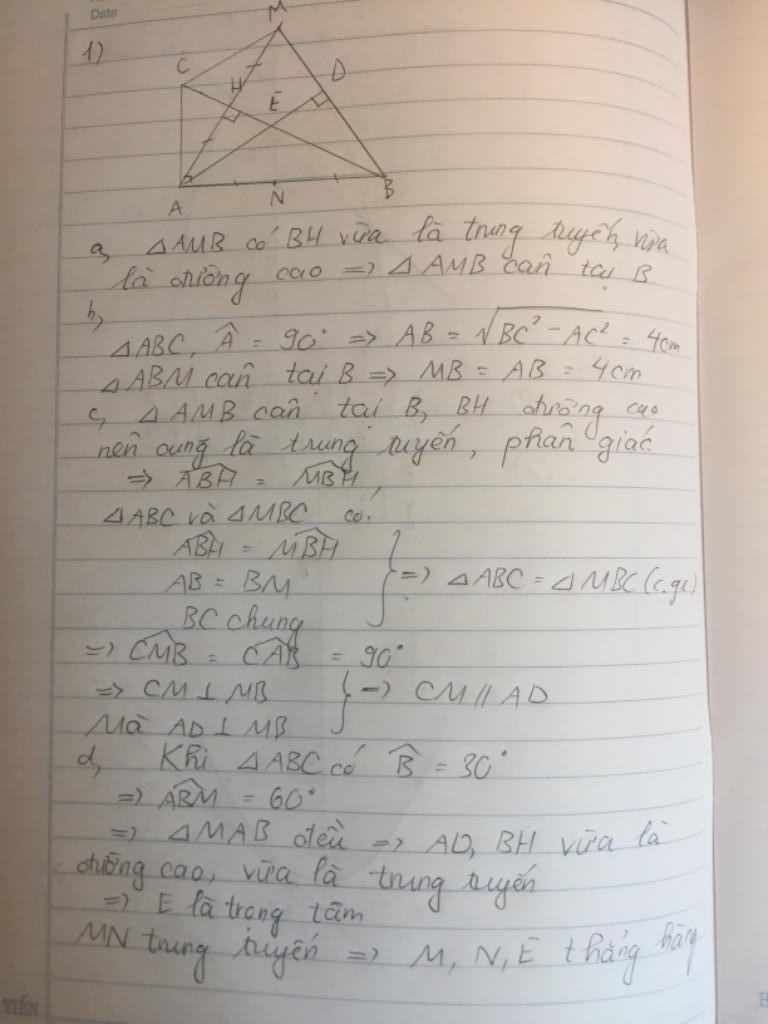 Date
1)
M
C
D
H
E
A
N
B
a, △AMB có BH vừa là trung tuyến, vừa
là đường cao => △AMB cân tại B
b,
△ABC, Â = 90° => AB = √BC² - AC² = 4cm
△ABM cân tại B => MB = AB = 4cm
c, △AMB cân tại B, BH đường cao
nên cung là trung tuyến, phân giác
=> ABH = MBH,
△ABC và △MBC có:
ABH = MBH
AB = BM
=> △ABC = △MBC (c.gc)
BC chung
=> CMB = CAB = 90°
=> CM ⊥ MB
=> CM // AD
Mà AD ⊥ MB
d, Khi △ABC có B̂ = 30°
=> ABM = 60°
=> △MAB đều => AD, BH vừa là
đường cao, vừa là trung tuyến
=> E là trọng tâm
MN trung tuyến => M, N, E thẳng hàng
TIẾN
H